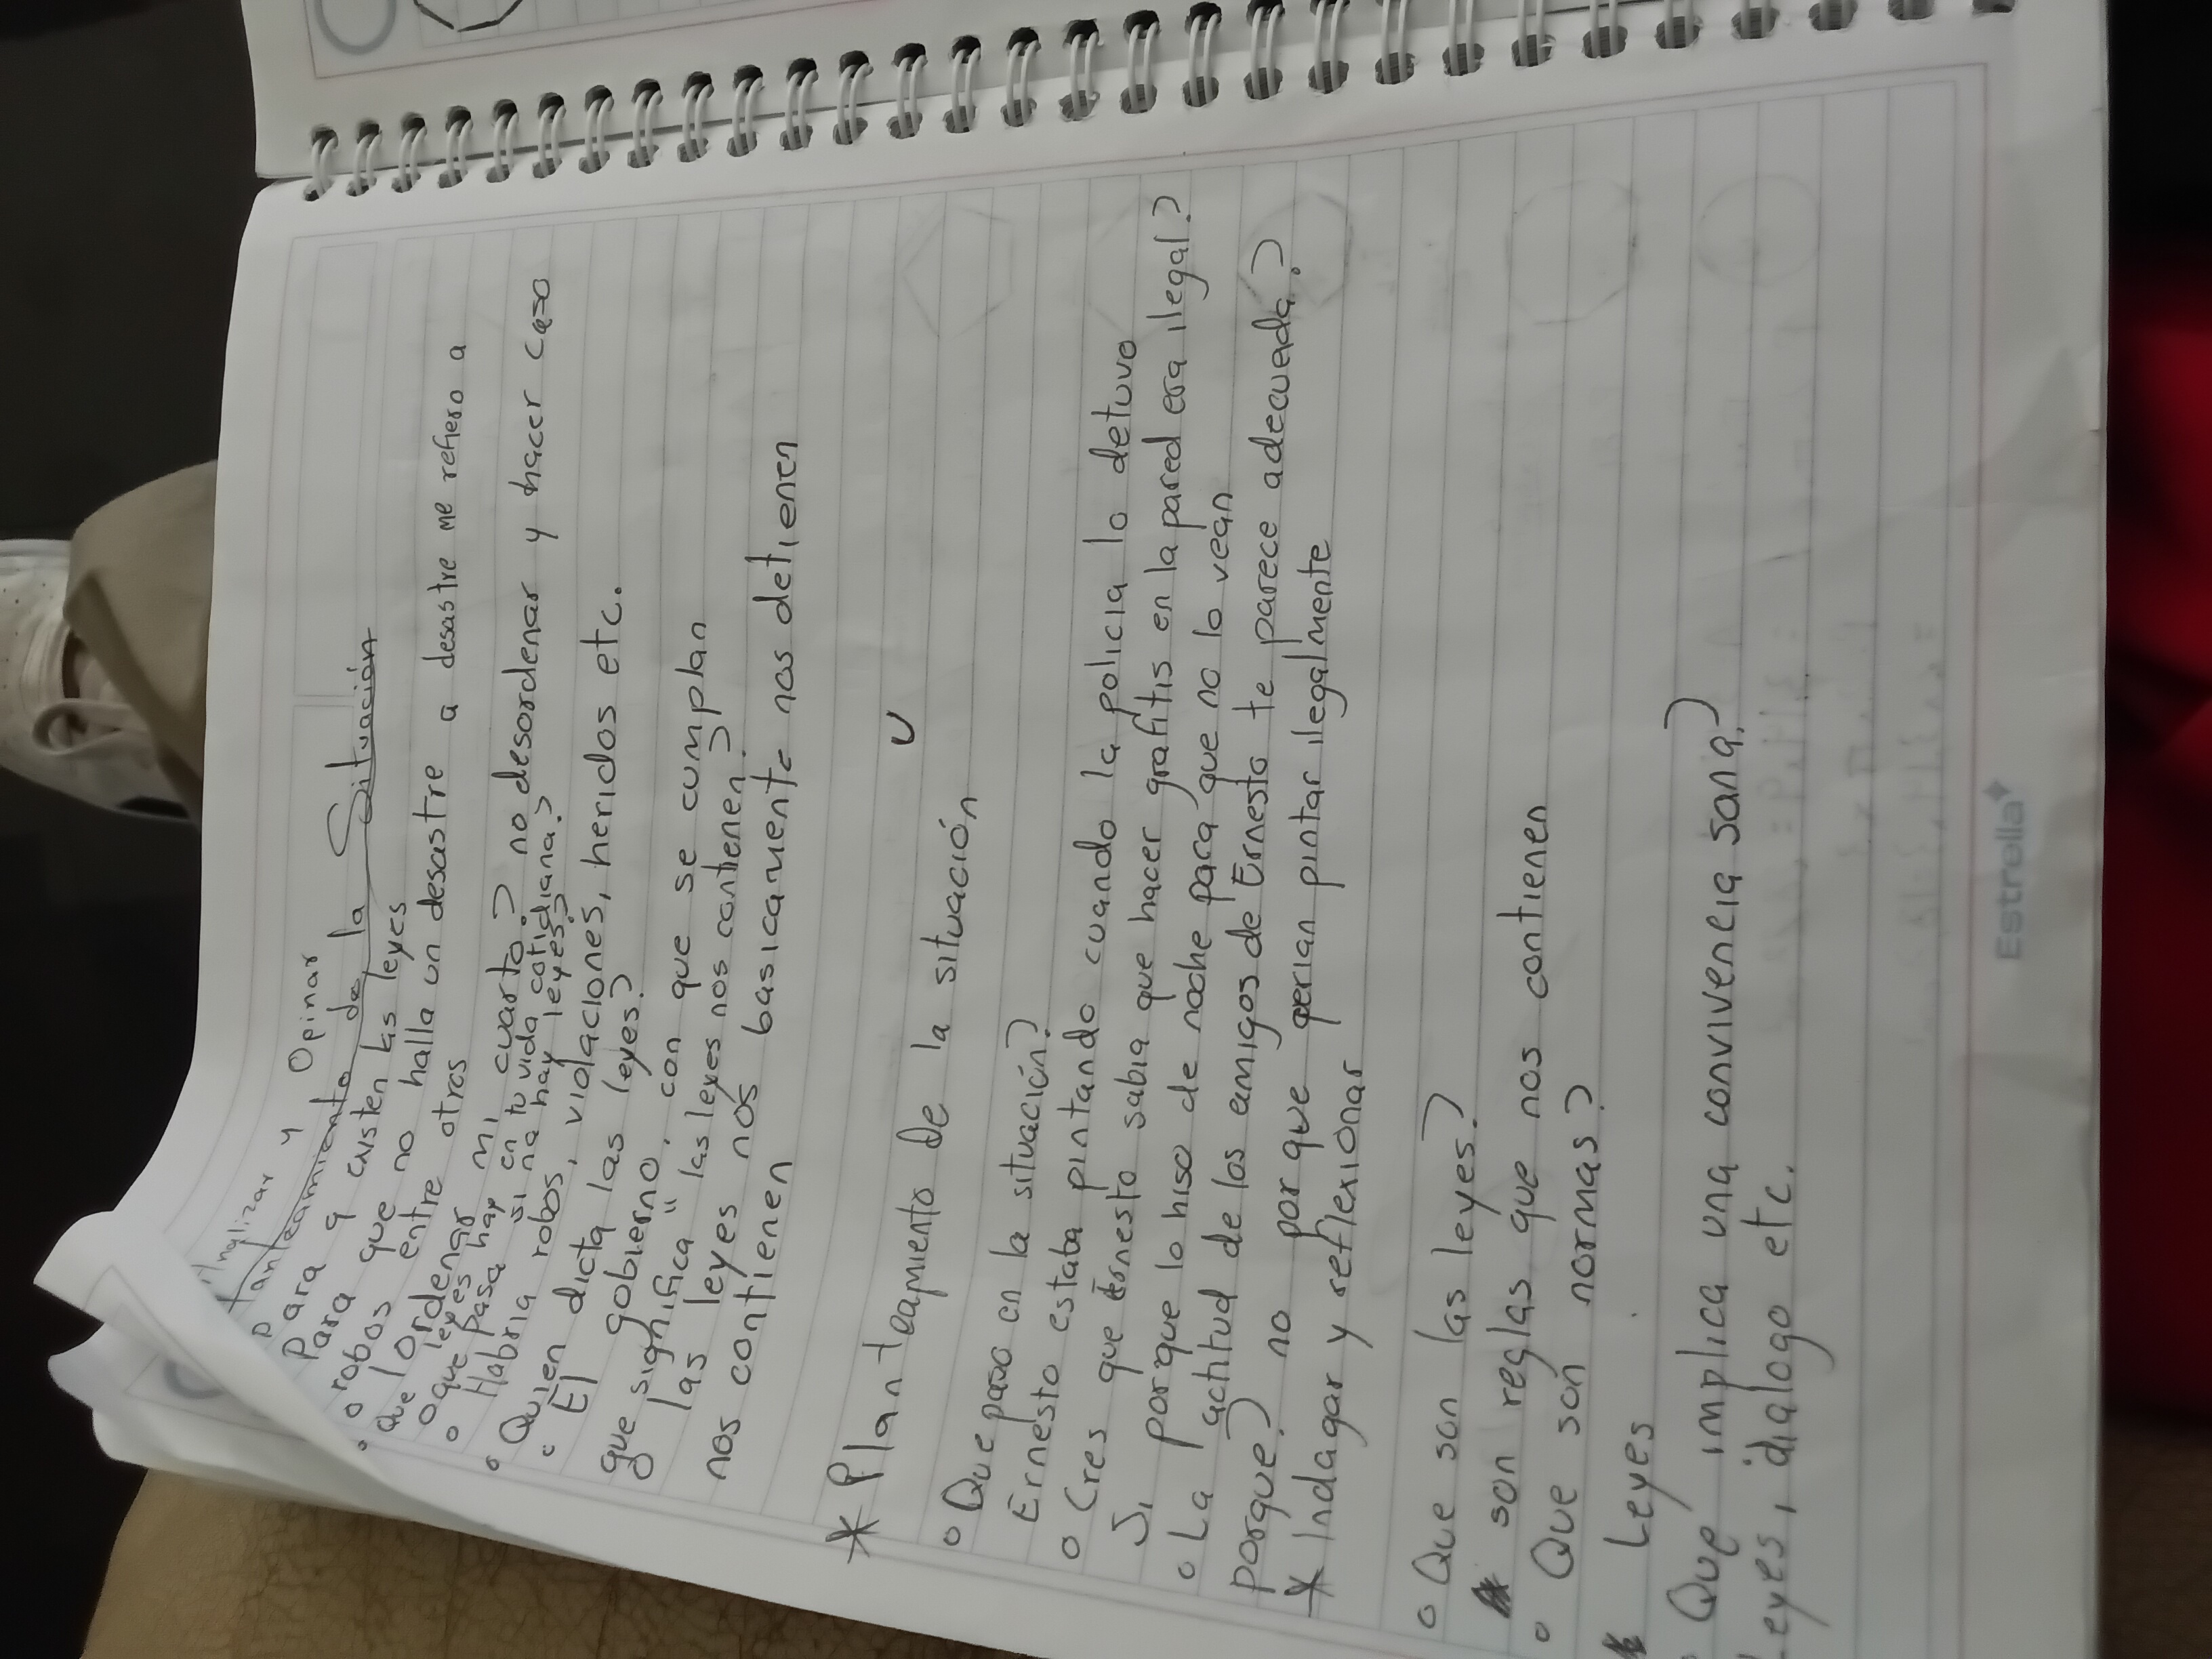 Analizar y Opinar
Planteamiento de la Situación
Para q existen las leyes
Para que no halla un desastre a desastre me refiero a
robos entre otros
Que leyes hay mi cuarto? no desordenar y hacer caso
lordenar
que pasa si en tu vida cotidiana?
no hay leyes?
Habria robos, violaciones, heridos etc.
Quien dicta las leyes?
El gobierno, con que se cumplan
que significa "las leyes nos contienen?
las leyes nos basicamente nos detienen
nos contienen
* Planteamiento De la situación
Que paso en la situación?
Ernesto estaba pintando cuando la policia lo detuvo
Cres que Ernesto sabia que hacer grafitis en la pared era ilegal?
Si porque lo hiso de noche para que no lo vean
La actitud de los amigos de Ernesto te parece adecuada?
porque? no por que qerian pintar ilegalmente
* Indagar y reflexionar
Que son las leyes?
son reglas que nos contienen
Que son normas?
Leyes
Que implica una convivencia sana?
Leyes, dialogo etc.
Estrella